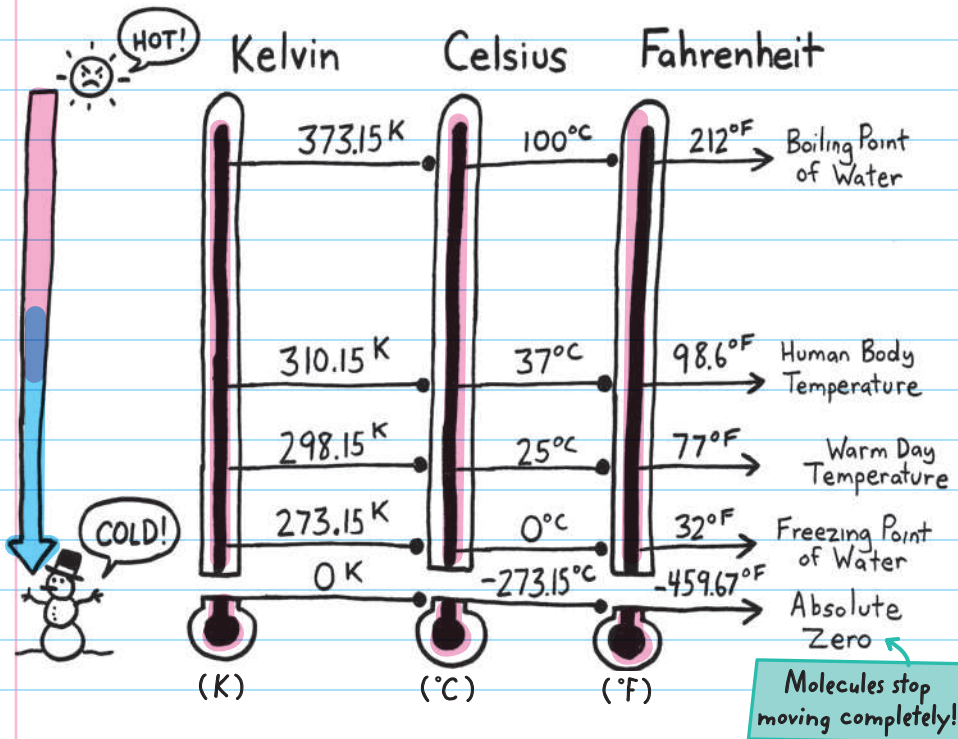 HOT!
Kelvin Celsius Fahrenheit
373.15 K 100°C 212°F Boiling Point
of Water
310.15 K 37°C 98.6°F Human Body
Temperature
298.15 K 25°C 77°F Warm Day
Temperature
COLD!
273.15 K 0°C 32°F Freezing Point
of Water
0 K -273.15°C -459.67°F Absolute
Zero
(K) (°C) (°F)
Molecules stop
moving completely!